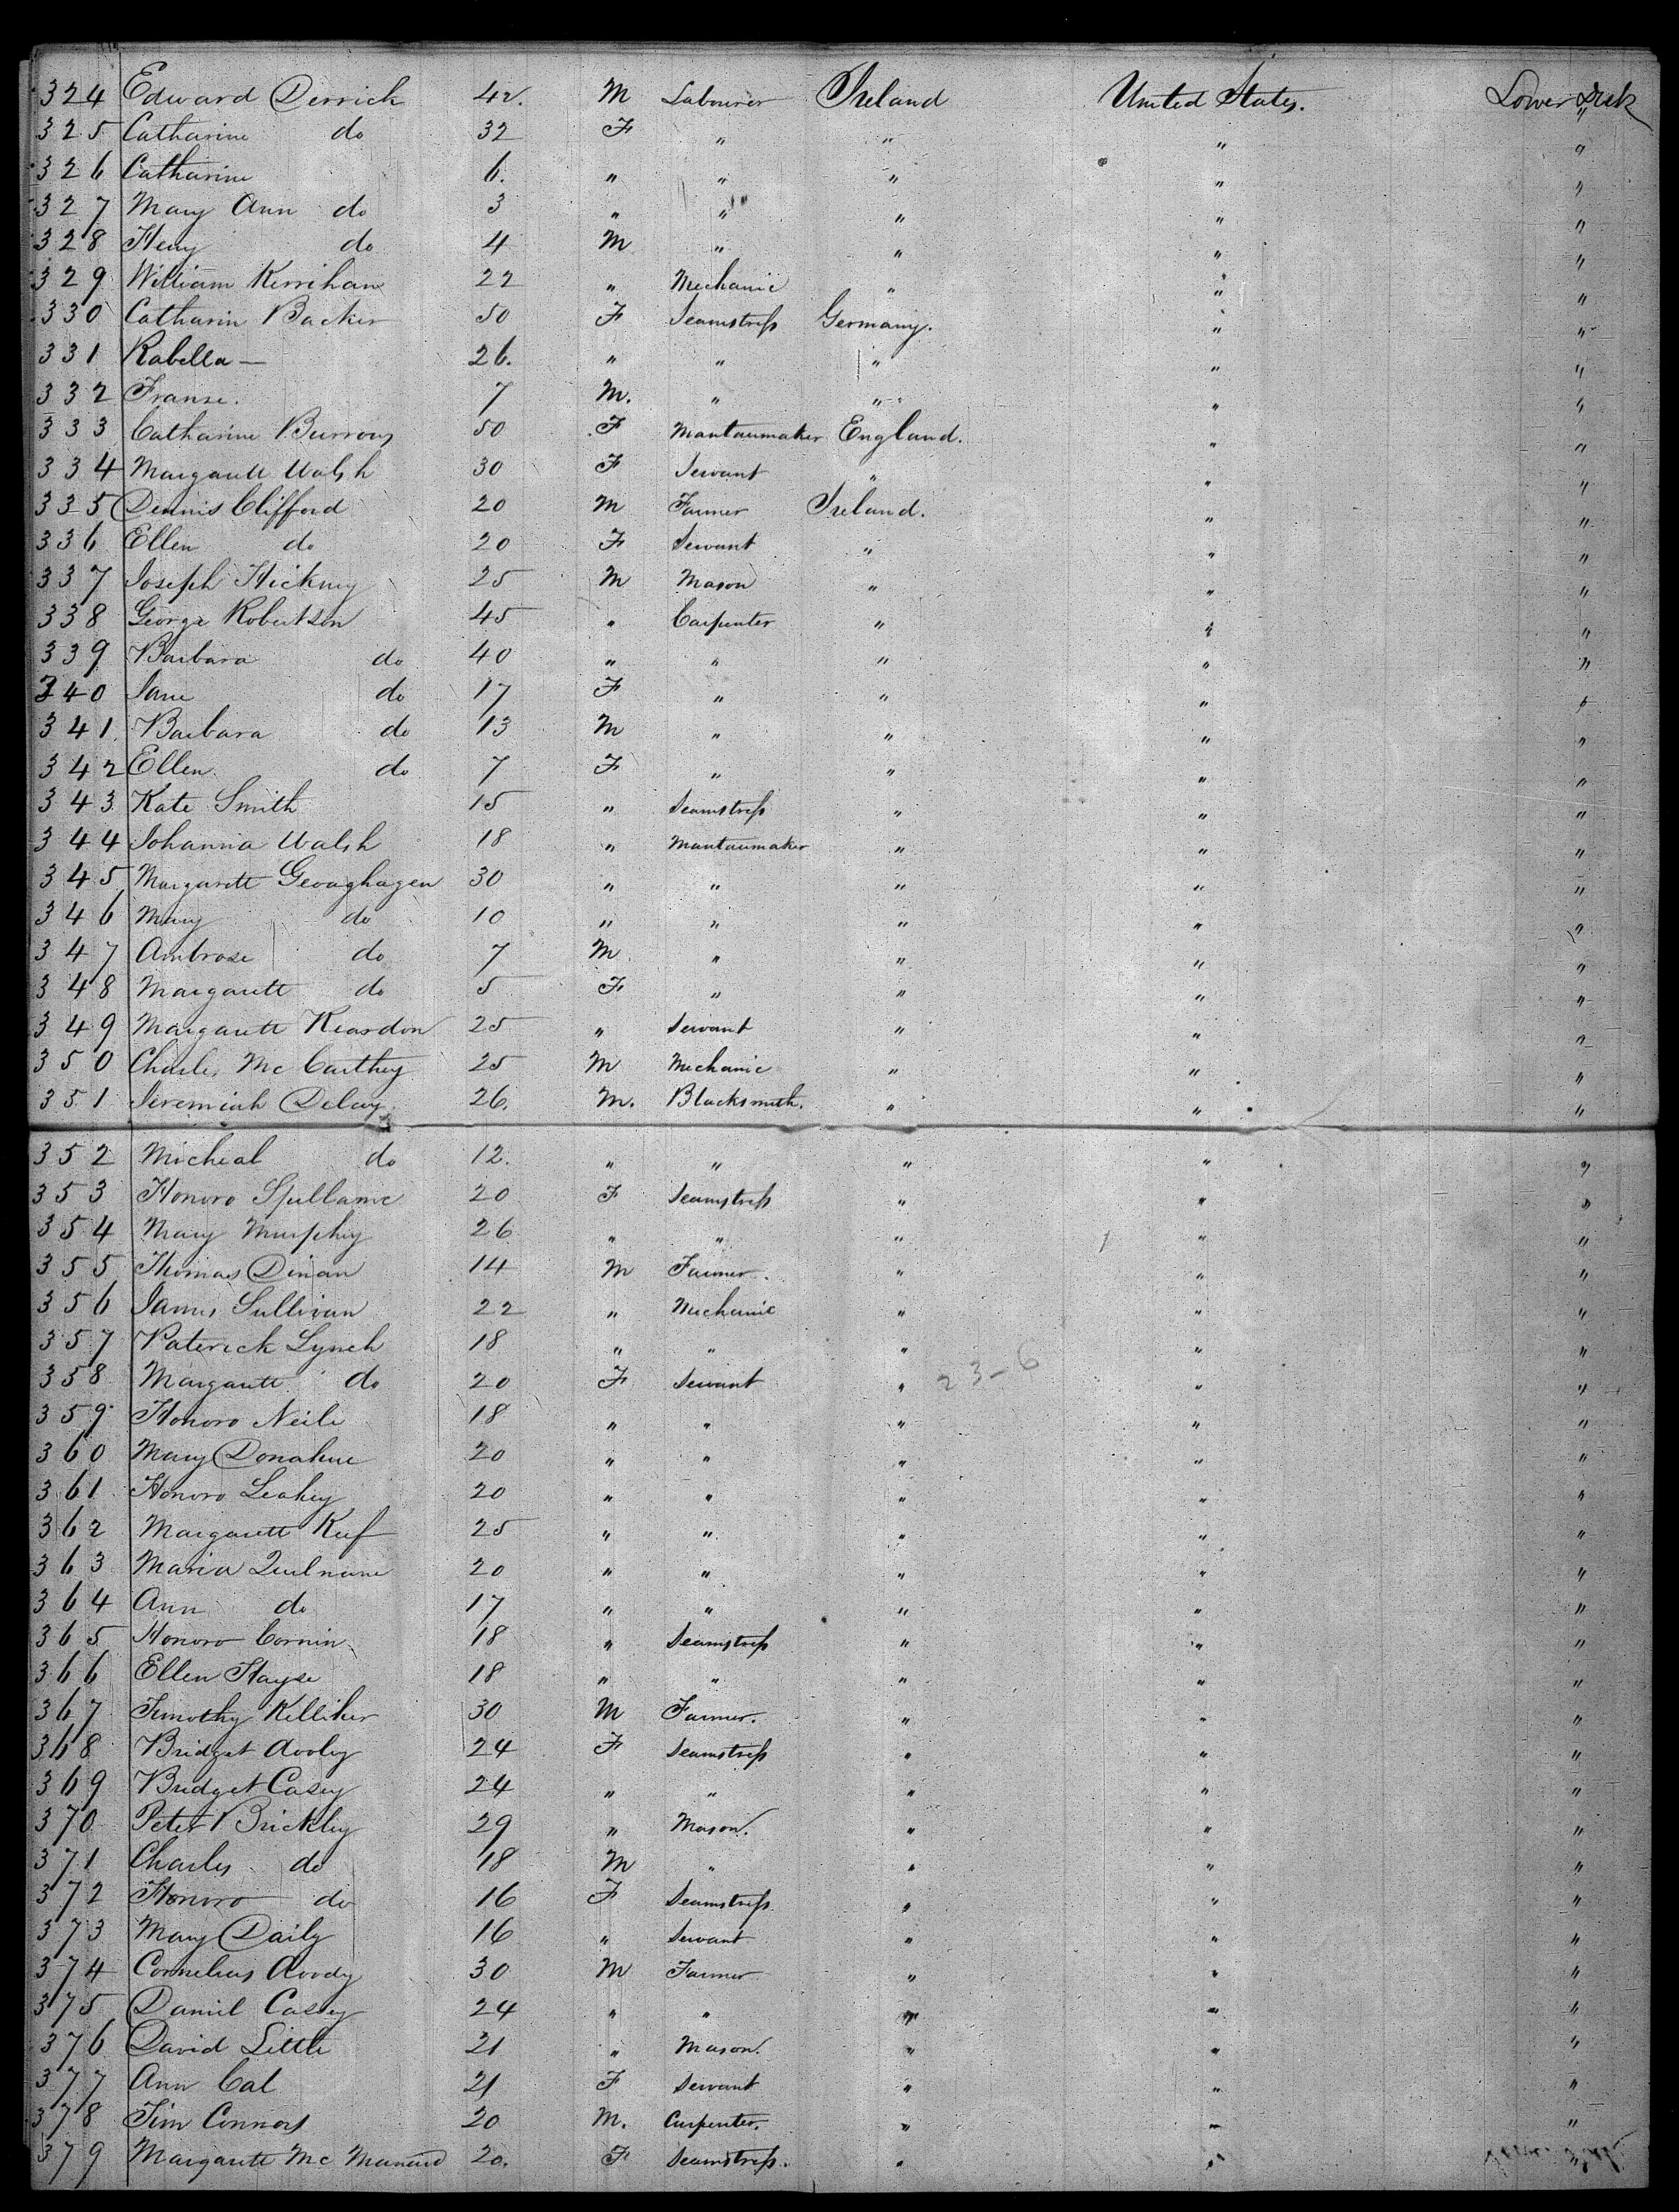 324 Edward Derrick 42. M Labourer Ireland United States. Lower Deck
325 Catharine do 32 F " " " "
326 Catharine 6. " " " " "
327 Mary Ann do 3 " " " " "
328 Heny do 4 M " " " "
329 William Kerrihan 22 " Mechanic " " "
330 Catharin Backer 50 F Seamstress Germany. " "
331 Rabella — 26. " " " " "
332 Franse. 7 M. " " " "
333 Catharine Burrows 50 F Mantaumaker England. " "
334 Margarett Walsh 30 F Servant " " "
335 Dennis Clifford 20 M Farmer Ireland. " "
336 Ellen do 20 F Servant " " "
337 Joseph Hickey 25 M Mason " " "
338 George Robertson 45 " Carpenter " " "
339 Barbara do 40 " " " " "
340 Jane do 17 F " " " "
341 Barbara do 13 M " " " "
342 Ellen do 7 F " " " "
343 Kate Smith 15 " Seamstress " " "
344 Johanna Walsh 18 " Mantaumaker " " "
345 Margarett Geoaghagen 30 " " " " "
346 Mary do 10 " " " " "
347 Ambrose do 7 M " " " "
348 Margarett do 5 F " " " "
349 Margarett Reardon 25 " Servant " " "
350 Charles Mc Carthey 25 M Mechanic " " "
351 Jeremiah Delay 26. M. Blacksmith. " " "
352 Micheal do 12. " " " " "
353 Honoro Spillane 20 F Seamstress " " "
354 Mary Murphy 26 " " " " "
355 Thomas Dinan 14 M Farmer. " " "
356 James Sullivan 22 " Mechanic " " "
357 Paterick Lynch 18 " " " " "
358 Margarett do 20 F Servant " 23-6 " "
359 Honoro Neile 18 " " " " "
360 Mary Donahue 20 " " " " "
361 Honoro Leahey 20 " " " " "
362 Margarett Keef 25 " " " " "
363 Maria 20 " " " " "
364 Ann do 17 " " " " "
365 Honoro Cornin 18 " Seamstress " " "
366 Ellen Hayse 18 " " " " "
367 Timothy Kelliher 30 M Farmer. " " "
368 Bridget Dooley 24 F Seamstress " " "
369 Bridget Casey 24 " " " " "
370 Peter Brickley 29 " Mason. " " "
371 Charles do 18 M " " " "
372 Honoro do 16 F Seamstress " " "
373 Mary Daily 16 " Servant " " "
374 Cornelius 30 M Farmer " " "
375 Daniel Casey 24 " " " " "
376 David Little 21 " Mason. " " "
377 Ann Cal 21 F Servant " " "
378 Tim Connors 20 M. Carpenter. " " "
379 Margarett Mc 20. F Seamstress. " " "